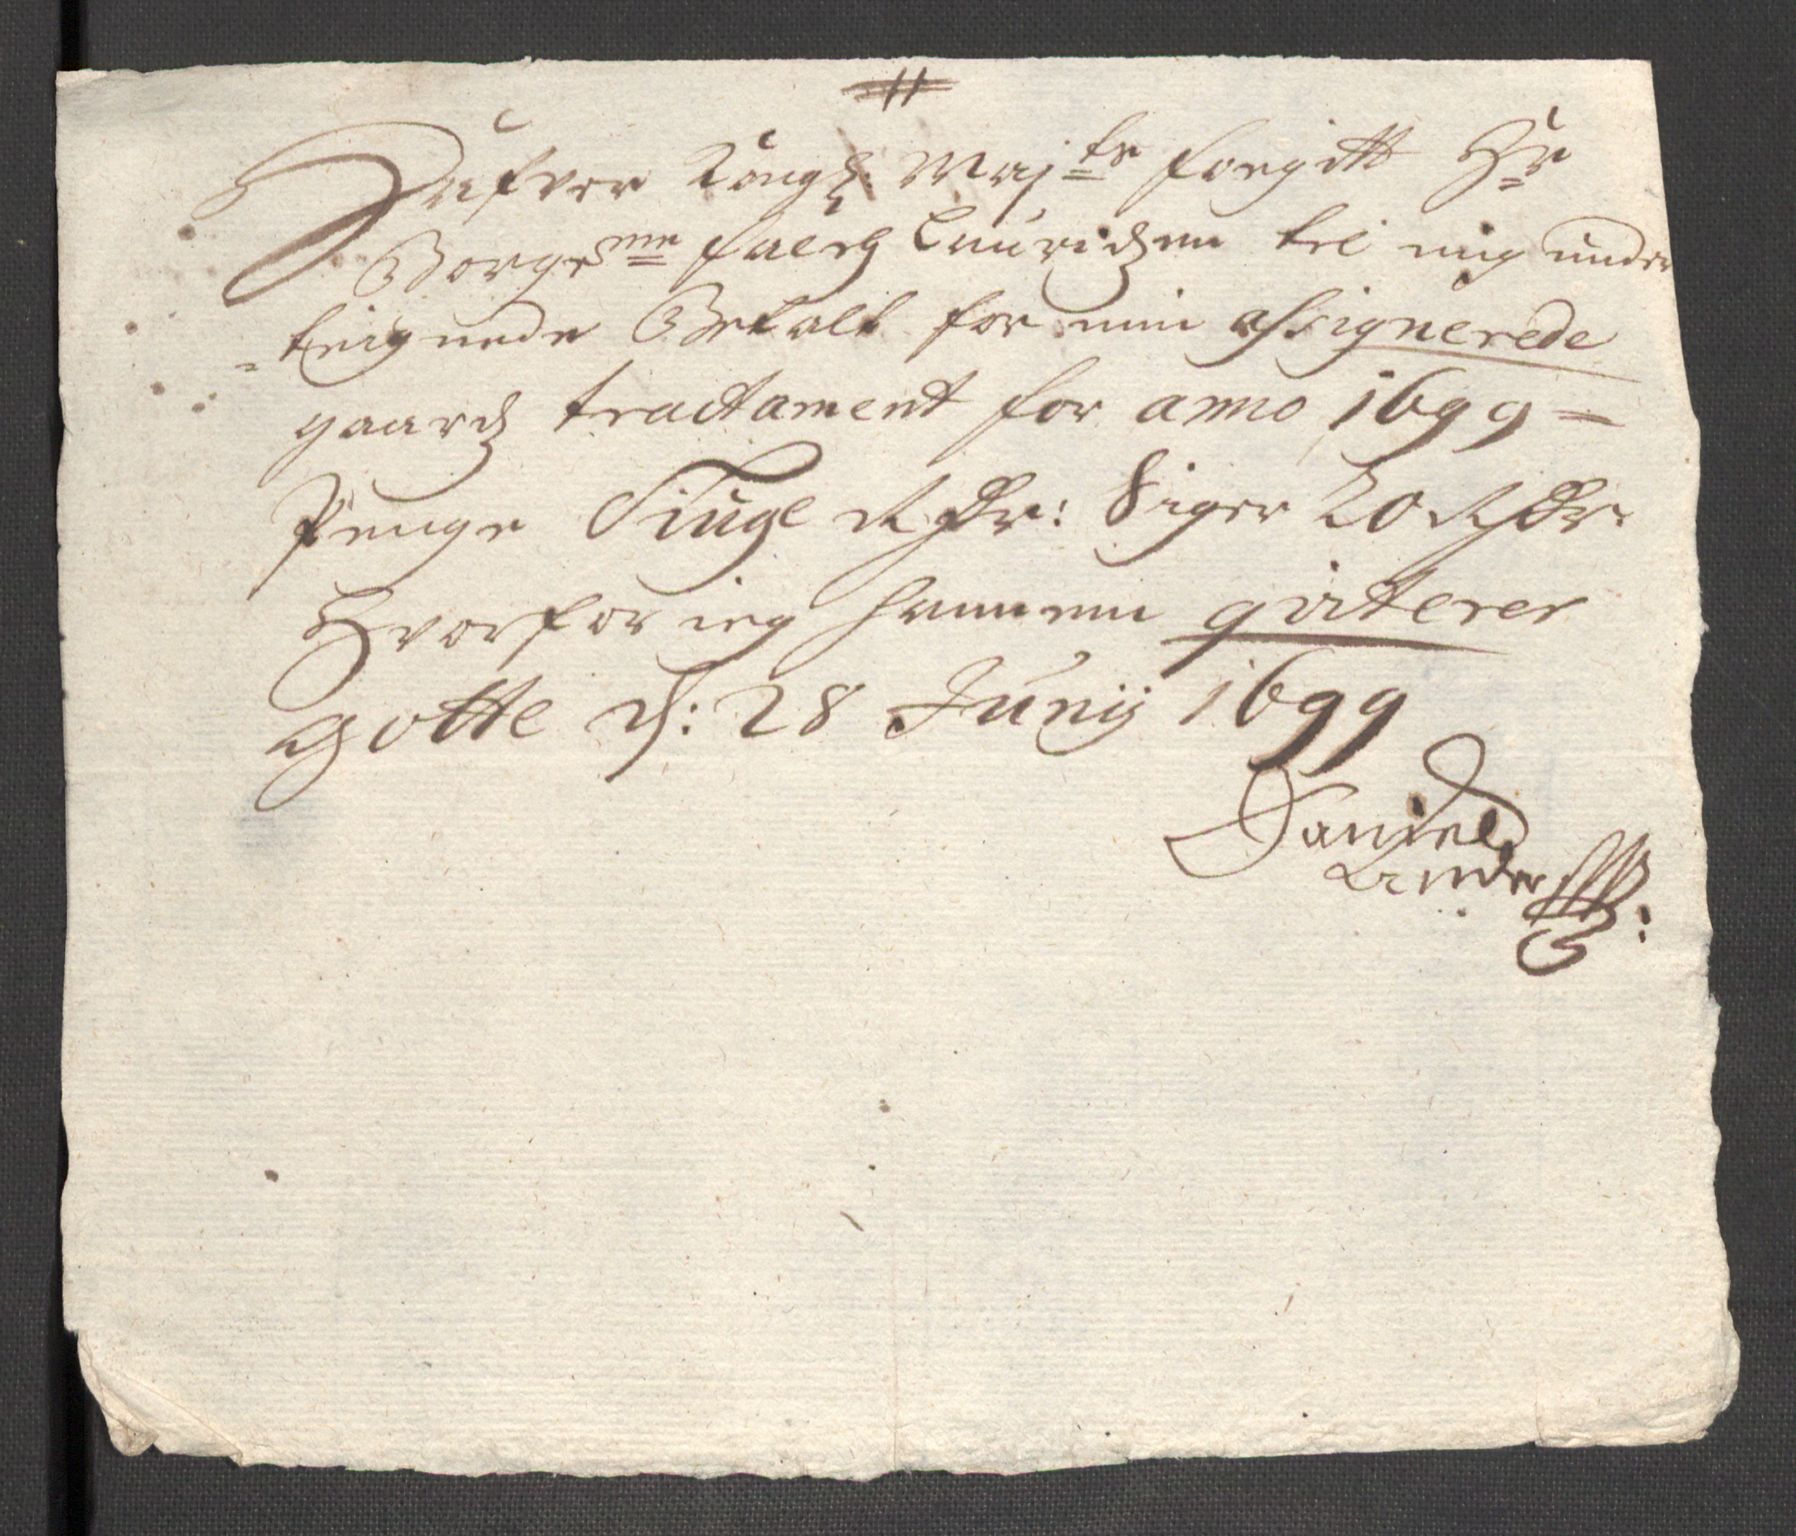 Hafver Kongl: Maj:te foegitt Hr
Borge:mr: Falch Lauridzen til mig under
=teignede Betalt for min assignerede
gaards tractament for anno 1699 =
Penge Tiuge Rdr: Siger 20 Rdr.
Hvorfor ieg hannem qviterer
Gotte d: 28 Junij 1699
Daniel